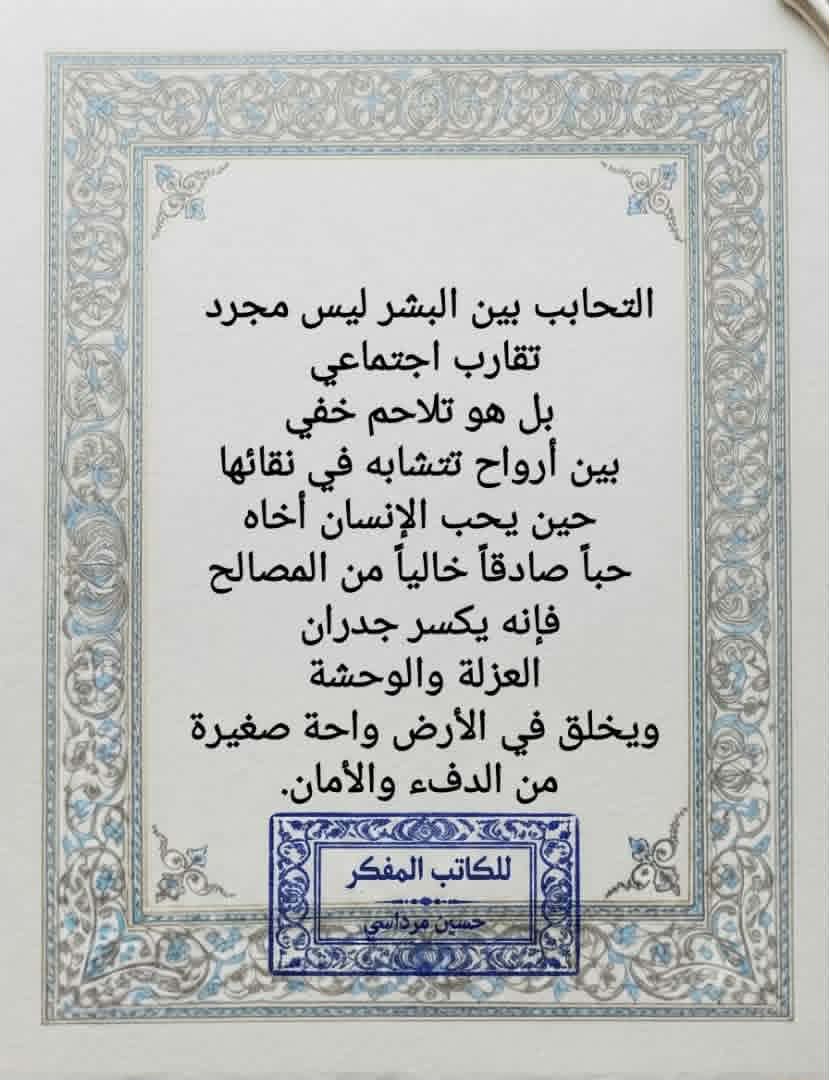 التحابب بين البشر ليس مجرد
تقارب اجتماعي
بل هو تلاحم خفي
بين أرواح تتشابه في نقائها
حين يحب الإنسان أخاه
حباً صادقاً خالياً من المصالح
فإنه يكسر جدران
العزلة والوحشة
ويخلق في الأرض واحة صغيرة
من الدفء والأمان.
للكاتب المفكر
حسين مرداسي